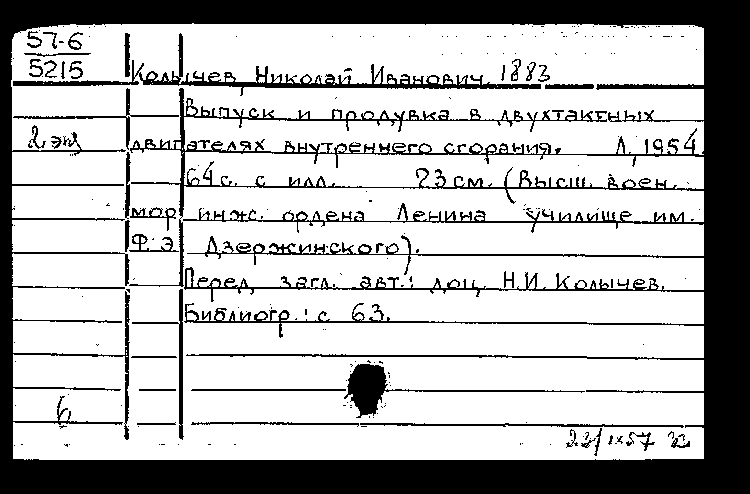 57-6
5215
Колычев, Николай Иванович, 1883
Выпуск и продувка в двухтактных
2 экз
двигателях внутреннего сгорания. Л., 1954.
64 с. с илл. 23 см. (Высш. воен.
мор инж. ордена Ленина училище им.
Ф. Э. Дзержинского).
Перед загл. авт.: доц. Н.И. Колычев.
Библиогр.: с 63.
б
23/IX57